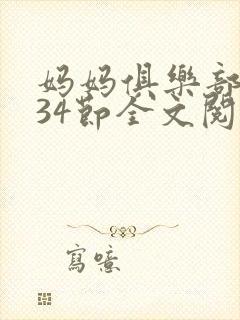 妈妈俱樂部
34節全文閱
寫噫